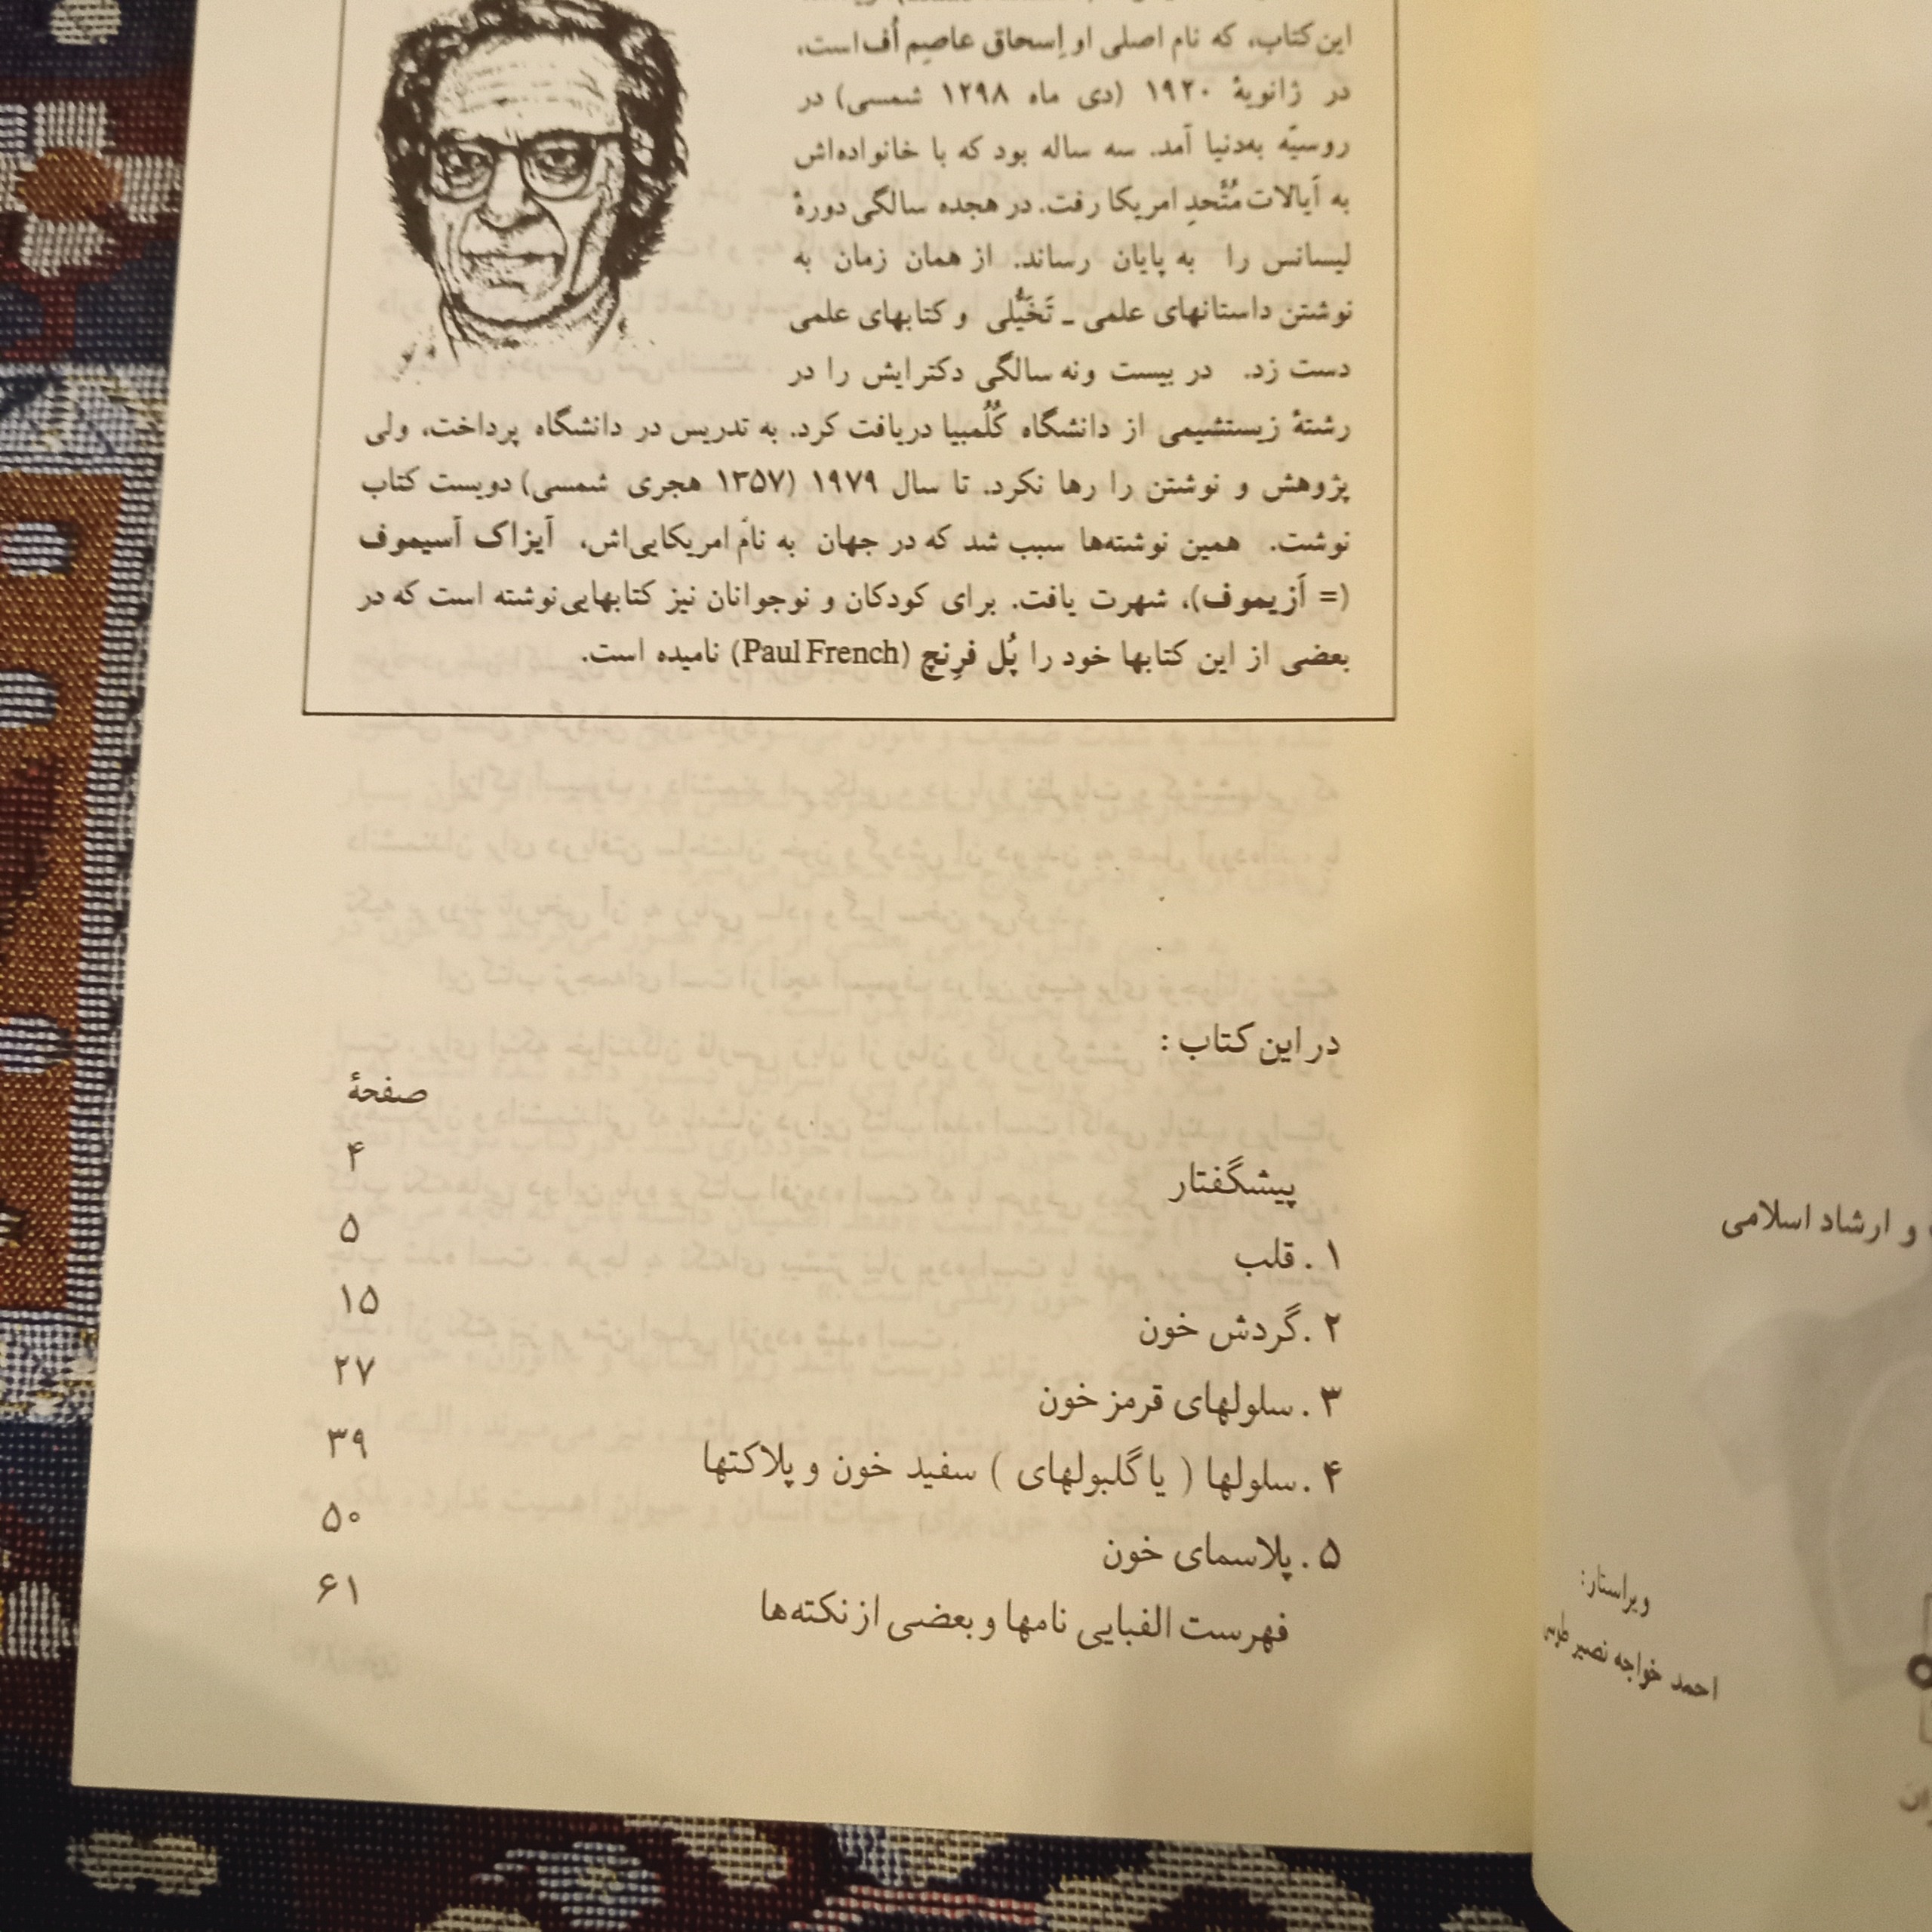 این کتاب، که نام اصلی او اِسحاق عاصیم اُف است،
در ژانویهٔ ۱۹۲۰ (دی ماه ۱۲۹۸ شمسی) در
روسیّه به‌دنیا آمد. سه ساله بود که با خانواده‌اش
به اَیالات مُتَّحدِ امریکا رفت. در هجده سالگی دورهٔ
لیسانس را به پایان رساند. از همان زمان به
نوشتن داستانهای علمی ـ تَخَیُّلی و کتابهای علمی
دست زد. در بیست ونه سالگی دکترایش را در
رشتهٔ زیستشیمی از دانشگاه کُلُمبیا دریافت کرد. به تدریس در دانشگاه پرداخت، ولی
پژوهش و نوشتن را رها نکرد. تا سال ۱۹۷۹ (۱۳۵۷ هجری شمسی) دویست کتاب
نوشت. همین نوشته‌ها سبب شد که در جهان به نام امریکایی‌اش، آیزاک آسیموف
(= اَزیموف)، شهرت یافت. برای کودکان و نوجوانان نیز کتابهایی‌نوشته است که در
بعضی از این کتابها خود را پُل فرِنچ (Paul French) نامیده است.
در این کتاب :
صفحهٔ
پیشگفتار ۴
۱ . قلب ۵
۲ . گردش خون ۱۵
۳ . سلولهای قرمز خون ۲۷
۴ . سلولها ( یا گلبولهای ) سفید خون و پلاکتها ۳۹
۵ . پلاسمای خون ۵۰
فهرست الفبایی نامها و بعضی از نکته‌ها ۶۱
و ارشاد اسلامی
ویراستار:
احمد خواجه نصیر طوسی